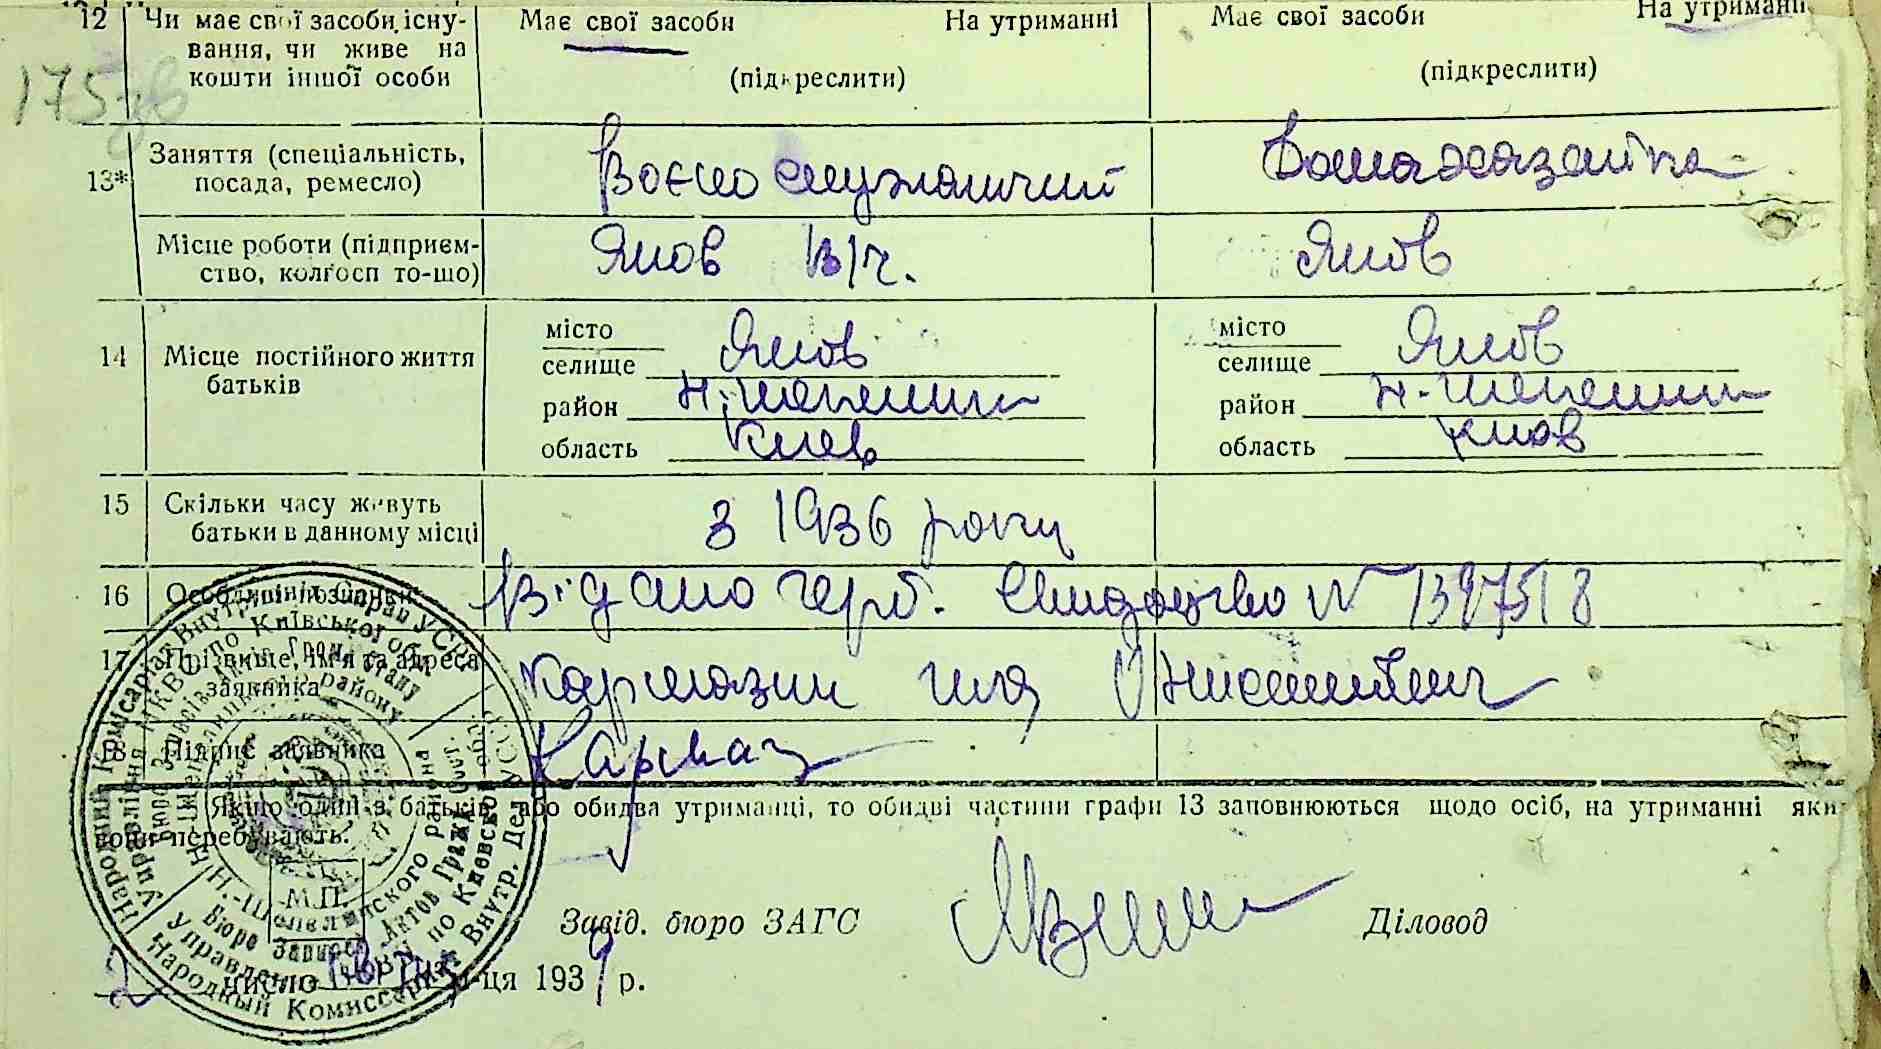 12 Чи має свої засоби існу- Має свої засоби На утриманні Має свої засоби На утриманні
вання, чи живе на
кошти іншої особи (підкреслити) (підкреслити)
175зв
Заняття (спеціальність, Воєнослужащий Домахазайка
13* посада, ремесло)
Місце роботи (підприєм- Янов В/ч. Янов
ство, колгосп то-що)
місто місто
14 Місце постійного життя Янов Янов
батьків селище селище
район Н. Шепелич район Н. Шепелич
область Киев область Киов
15 Скільки часу живуть З 1936 року
батьки в данному місці
16 Особливі познаки Відано герб. Свидоцтво № 1397518
17 Прізвище, ім'я та адреса Кармазин
заявника
18 Підпис заявника Кармаз
Якщо один з батьків або обидва утриманці, то обидві частини графи 13 заповнюються щодо осіб, на утриманні яких
вони перебувають.
М.П.
Завід. бюро ЗАГС Діловод
2 число м-ця 1939 р.
Народний Комісаріат Внутрішніх Справ УСРР
Управління НКВС по Київської обл.
Бюро Записів Актів Гром. Стану
Н.-Шепелицького району
Народный Комиссариат Внутр. Дел УССР
Управление НКВД по Киевской обл.
Бюро Записей Актов Гражд.
Н.-Шепеличского района